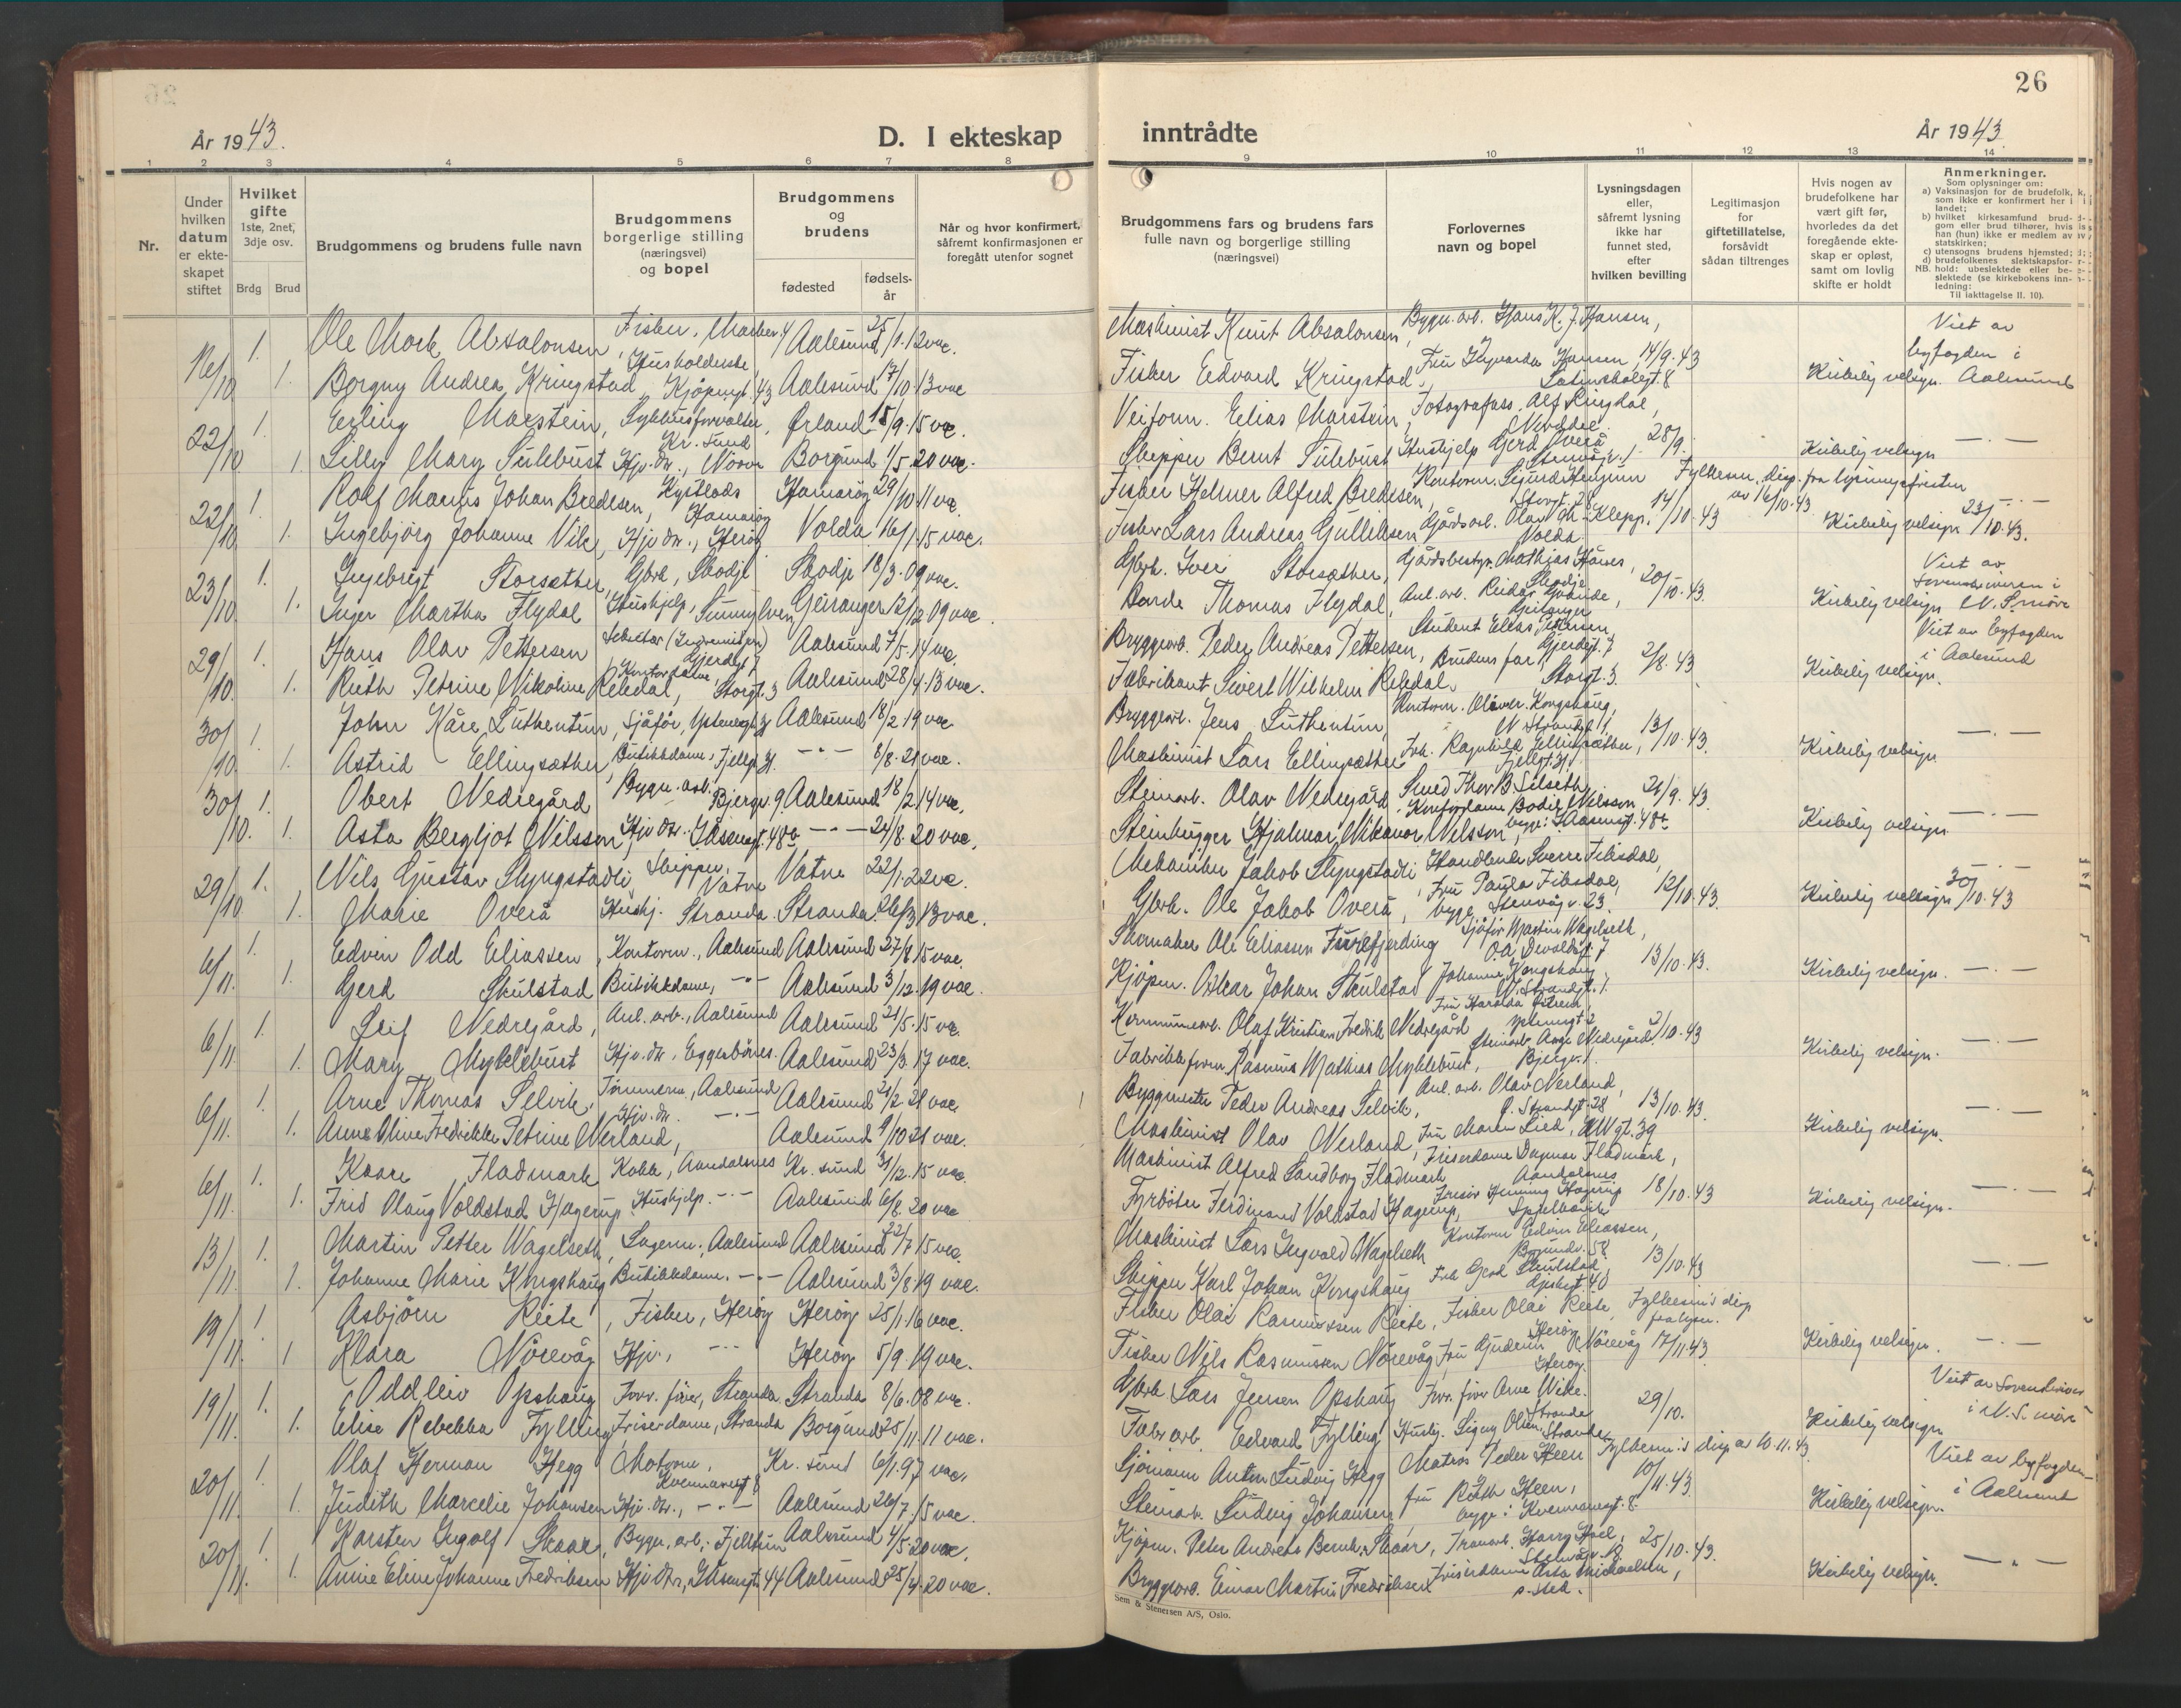 26
År 1943.
D. I ekteskap inntrådte
År 1943
1 2 3 4 5 6 7 8 9 10 11 12 13 14
Nr.
Under hvilken datum er ekteskapet stiftet
Hvilket gifte 1ste, 2net, 3dje osv.
Brdg Brud
Brudgommens og brudens fulle navn
Brudgommens borgerlige stilling (næringsvei) og bopel
Brudgommens og brudens
fødested
fødselsår
Når og hvor konfirmert, såfremt konfirmasjonen er foregått utenfor sognet
Brudgommens fars og brudens fars fulle navn og borgerlige stilling (næringsvei)
Forlovernes navn og bopel
Lysningsdagen eller, såfremt lysning ikke har funnet sted, efter hvilken bevilling
Legitimasjon for giftetillatelse, forsåvidt sådan tiltrenges
Hvis nogen av brudefolkene har vært gift før, hvorledes da det foregående ekteskap er opløst, samt om lovlig skifte er holdt
Anmerkninger.
Som oplysninger om:
a) Vaksinasjon for de brudefolk, som ikke er konfirmert her i landet;
b) hvilket kirkesamfund brudgom eller brud tilhører, hvis han (hun) ikke er medlem av statskirken;
c) utensogns brudens hjemsted;
d) brudefolkenes slektskapsforhold: ubeslektede eller beslektede (se kirkebokens innledning:
NB.
Til iakttagelse II. 10).
16/10 1. Ole Mork Absalonsen, Fisker, Aalesund 25/1.12 vac. Maskinist Knut Absalonsen, Bygn. arb. Hans K. J. Hansen, Viet av
1. Borgny Andrea Kringstad, Husholderske Kjøpmgt. 43 Aalesund 17/10.13 vac Fisker Edvard Kringstad, Fru Ingvarda Hansen 14/9.43 Latinskolegt. 8 Kirkelig velsign. byfogden i Aalesund
22/10 1. Erling Marstein, Sykehusforvalter, Kr. sund Ørland 15/9.15 vac. Veiform. Elias Marstein, Fotografass. Alf Ringdal,
1. Lilly Mary Sulebust Hjv. dtr., Nörve Borgund 1/5.20 vac. Skipper Bernt Sulebust Hushjelp Gerd Overå 28/9. Kirkelig velsign — . —
22/10 1. Rolf Marius Johan Bredesen, Hamarøy Hamarøy 29/10.11 vac. Fisker Helmer Alfred Bredesen, Kontorm. Storgt. 28 Fylkesm. disp. fra lysningsfristen av 16/10.43
1. Ingebjörg Johanne Vik, Hjv. dtr., Herøy Volda 16/1.15 vac. Fisker Lars Andreas Gulliksen Gårdsarb. Olav Chr. Klepp. Volda 14/10.43 Kirkelig velsign 23/10.43.
23/10 1. Ingebrigt Storsæther, Gbrk, Skodje Skodje 18/3.09 vac. Gbrk. Iver Storsæther, Gårdsbestyr. Mathias Skodje Viet av
1. Inger Martha Flydal Hushjelp, Sunnylven Geiranger 12/12.09 vac. Thomas Flydal, Anl. arb. Reidar Geiranger 20/10.43. Kirkelig velsign Sorenskriveren i N. S.möre
29/10. 1. Hans Olav Pettersen Aalesund 7/5.14 vac. Bryggearb. Peder Andreas Pettersen, Student Elias Pettersen Gjerdegt. 7 Viet av byfogden
1. Ruth Petrine Nikoline Rekdal, Storgt. 3 Aalesund 28/4.13 vac. Fabrikant Sivert Wilhelm Rekdal. Brudens far Storgt. 3. 2/8.43 Kirkelig velsign. i Aalesund
30/10 1. John Kåre Luthentun, Sjåför, Aalesund 18/2.19 vac Bryggearb. Jens Luthentun, Kontorm. Oliver Kongshaug,
1. Astrid Ellingsæther, Butikkdame, Fjellgt. 31. — " — 8/8.21 vac. Maskinist Lars Ellingsæther Frk. Ragnhild Ellingsæther, Fjellgt. 31. 13/10.43. Kirkelig velsign — . —
30/10. 1. Obert Nedregård Bygn. arb. Bjergv. 9. Aalesund 18/2.14 vac, Steinarb. Olav Nedregård Smed Thor B. Silseth, 21/9.43.
1. Asta Bergljot Nilsson, Hjv. dtr. — " — 24/8.20 vac. Steinhugger Hjalmar Nikanor Nilsson, Kontordame Bodil Nilsson Kirkelig velsign — . —
29/10 1. Nils Gustav Slyngstadli, Skipper, Vatne Vatne 22/1.22 vac. Mekaniker Jakob Slyngstadli Handlende Sverre Fiksdal,
1. Marie Overå Hushj. Stranda. Stranda. 26/3.13 vac. Gbrk. Ole Jakob Overå, Fru Paula Fiksdal, begge Stenvågv. 23. 12/10.43. Kirkelig velsign 30/10.43
6/11. 1. Edvin Odd Eliassen, Kontorm., Aalesund Aalesund 27/8.15 vac. Skomaker Ole Eliassen Furefjerding Sjåför Martin Wagelseth,
1. Gerd Skulstad Butikkdame, — " — Aalesund 3/12.19 vac. Kjöpm. Oskar Johan Skulstad Johanne Kongshaug N. Strandgt. 1. 13/10.43. Kirkelig velsign. — . —
6/11. 1. Leif Nedregård, Anl. arb., Aalesund Aalesund 21/5.15 vac. Kommunearb. Olaf Kristian Fredrik Nedregård Fru Haralda
1. Mary Myklebust Hjv. dtr., Eggesbönes. Aalesund 23/3.17 vac. Fabrikkform. Rasmus Mathias Myklebust, Steinarb. Aage Nedregård Bjergv. 2/10.43 Kirkelig velsign. — . —
6/11. 1. Arne Thomas Selvik, Tömmerm., Aalesund Aalesund 21/2.21 vac. Byggmester Peder Andreas Selvik, Anl. arb. Olav Nerland,
1. Anna Oline Fredrikke Petrine Nerland, Hjv. dtr. — . — Aalesund 9/10.21 vac. Maskinist Olav Nerland, Fru Maren Lied, 13/10.43. Kirkelig velsign. — . —
6/11. 1. Kaare Fladmark Kokk, Aandalsnes Kr. sund 31/12.15 vac. Maskinist Alfred Sandborg Fladmark Friserdame Dagmar Fladmark, Aandalsnes
1. Frid Olaug Voldstad Hagerup Hushjelp. — . — Aalesund 6/8.20 vac Fyrböter Ferdinand Voldstad Hagerup, Frisör Henning Hagerup 18/10.43 Kirkelig velsign. — . —
13/11. 1. Martin Petter Wagelseth, Lagerm., Aalesund Aalesund 22/7.15 vac. Maskinist Lars Ingvald Wagelseth Kontorm Edvin Eliassen, Borgundv. 58
1. Johanne Marie Kongshaug Butikkdame. — " — Aalesund 3/8.19 vac. Skipper Karl Johan Kongshaug Frk. Gerd Skulstad, 13/10.43 — . —
19/11. 1. Asbjörn Reite, Fisker, Heröy Heröy 25/1.16 vac. Fisker Olai Rasmussen Reite, Fisker Olai Reite, Heröy Fylkesm's disp
1 Klara Nörevåg Hjv., — " — Heröy 5/9.19 vac. Fisker Nils Rasmussen Nörevåg, Fru Gudrun Nörevåg Heröy. 17/11.43 Kirkelig velsign. — . —
19/11. 1. Oddleiv Opshaug Forr. förer, Stranda Stranda 8/6.08 vac. Gbrk. Lars Jensen Opshaug Forr. förer Arne Wike. Stranda 29/10. Viet av Sorenskriver
1. Elise Rebekka Fylling, Friserdame, Stranda Borgund 25/11.11 vac. Fabr. arb. Edvard Fylling Hushj. Signy Olsen, Stranda Kirkelig velsign i N. S. möre
20/11. 1. Olaf Herman Hegg Motorm, Kr. sund 6/1.97 vac. Sjömann Anton Ludvig Hegg Matros Peder Heen Fylkesm's disp av 10.11.43. Viet av byfogden
1. Judith Marcelie Johansen Hjv. dtr., — . — Aalesund 26/7.15 vac. Steinarb. Ludvig Johansen, fru Ruth Heen, begge: Kvennanesgt. 8. 10/11.43. Kirkelig velsign. i Aalesund
20/11. 1. Karsten Ingolf Skaar, Bygn. arb., Fjelltun Aalesund 4/5.20 vac. Kjöpm. Peter Andreas Bernh. Skaar, Tranarb. Harry 25/10.43.
1. Annie Eline Johanne Fredriksen Hjv. dtr., 44 Aalesund 25/4.20 vac. Bryggearb. Einar Martin Fredriksen Friserdame Asta Michaelsen, s. sted. Kirkelig velsign. — " —
Sem & Stenersen A/S, Oslo.